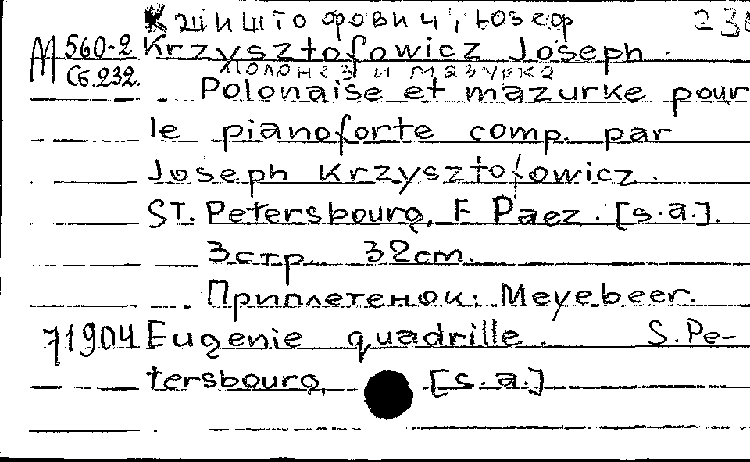 Кшиштофович, Юзеф 238
M 560-2 Krzysztofowicz Joseph.
Сб.232. Полонез и мазурка
Polonaise et mazurke pour
le pianoforte comp. par
Joseph Krzysztofowicz.
ST. Petersbourg, F. Paez. [s.a.].
3стр. 32cm.
Приплетенок: Meyebeer.
71904 Eugenie quadrille. S.Pe-
tersbourg, [s.a.]